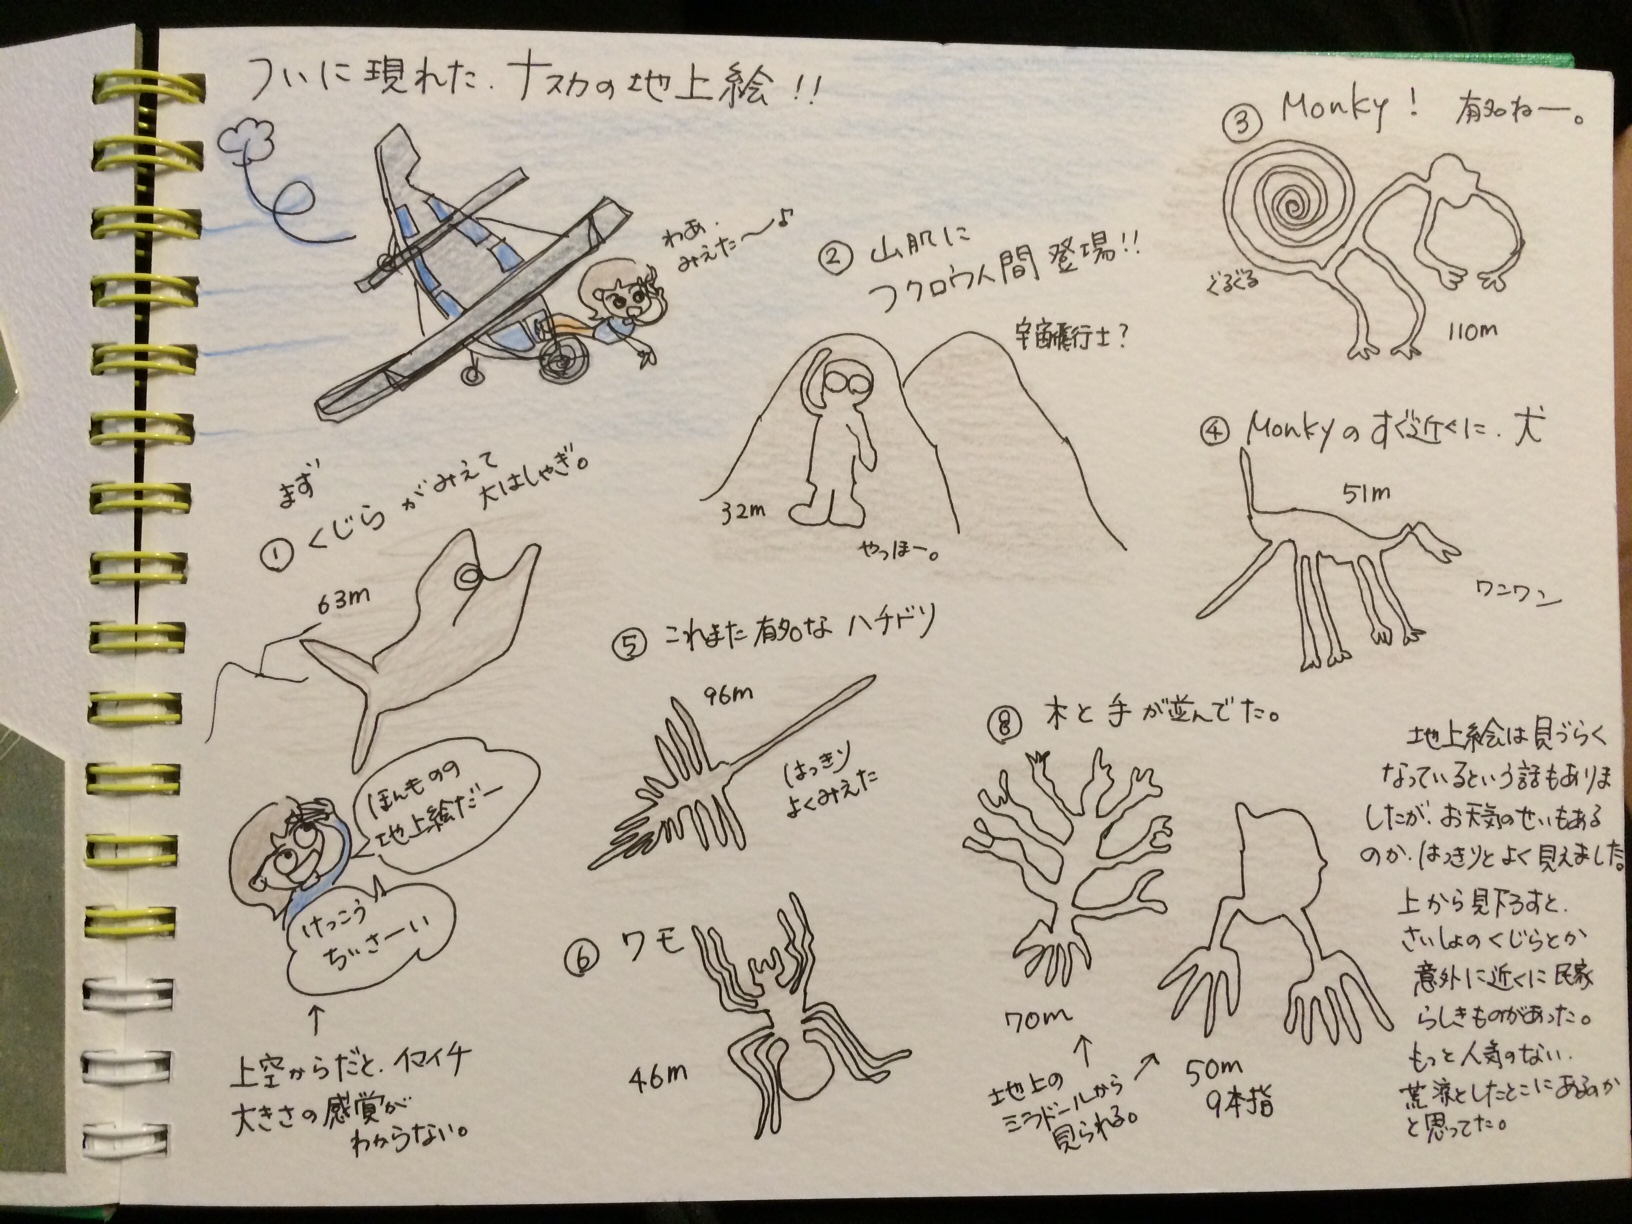 ついに現れた.ナスカの地上絵!!
わあ.
みえた〜♪
まず
① くじらがみえて
大はしゃぎ。
63m
ほんものの
地上絵だー
けっこう
ぢぃさーい
↑
上空からだと.イマイチ
大きさの感覚が
わからない。
② 山肌に
フクロウ人間 登場!!
宇宙飛行士?
32m
やっほー。
③ Monky! 有名ねー。
ぐるぐる
110m
④ Monkyのすぐ近くに.犬
51m
ワンワン
⑤ これまた有名な ハチドリ
96m
はっきり
よくみえた
⑥ クモ
46m
⑧ 木と手が並んでた。
70m
50m
9本指
地上の
ミラドールから
見られる。
地上絵は見づらく
なっているという話もありま
したが.お天気のせいもある
のか.はっきりとよく見えました。
上から見下ろすと.
さいしょのくじらとか
意外に近くに民家
らしきものがあった。
もっと人気のない.
荒涼としたとこにあるのか
と思ってた。